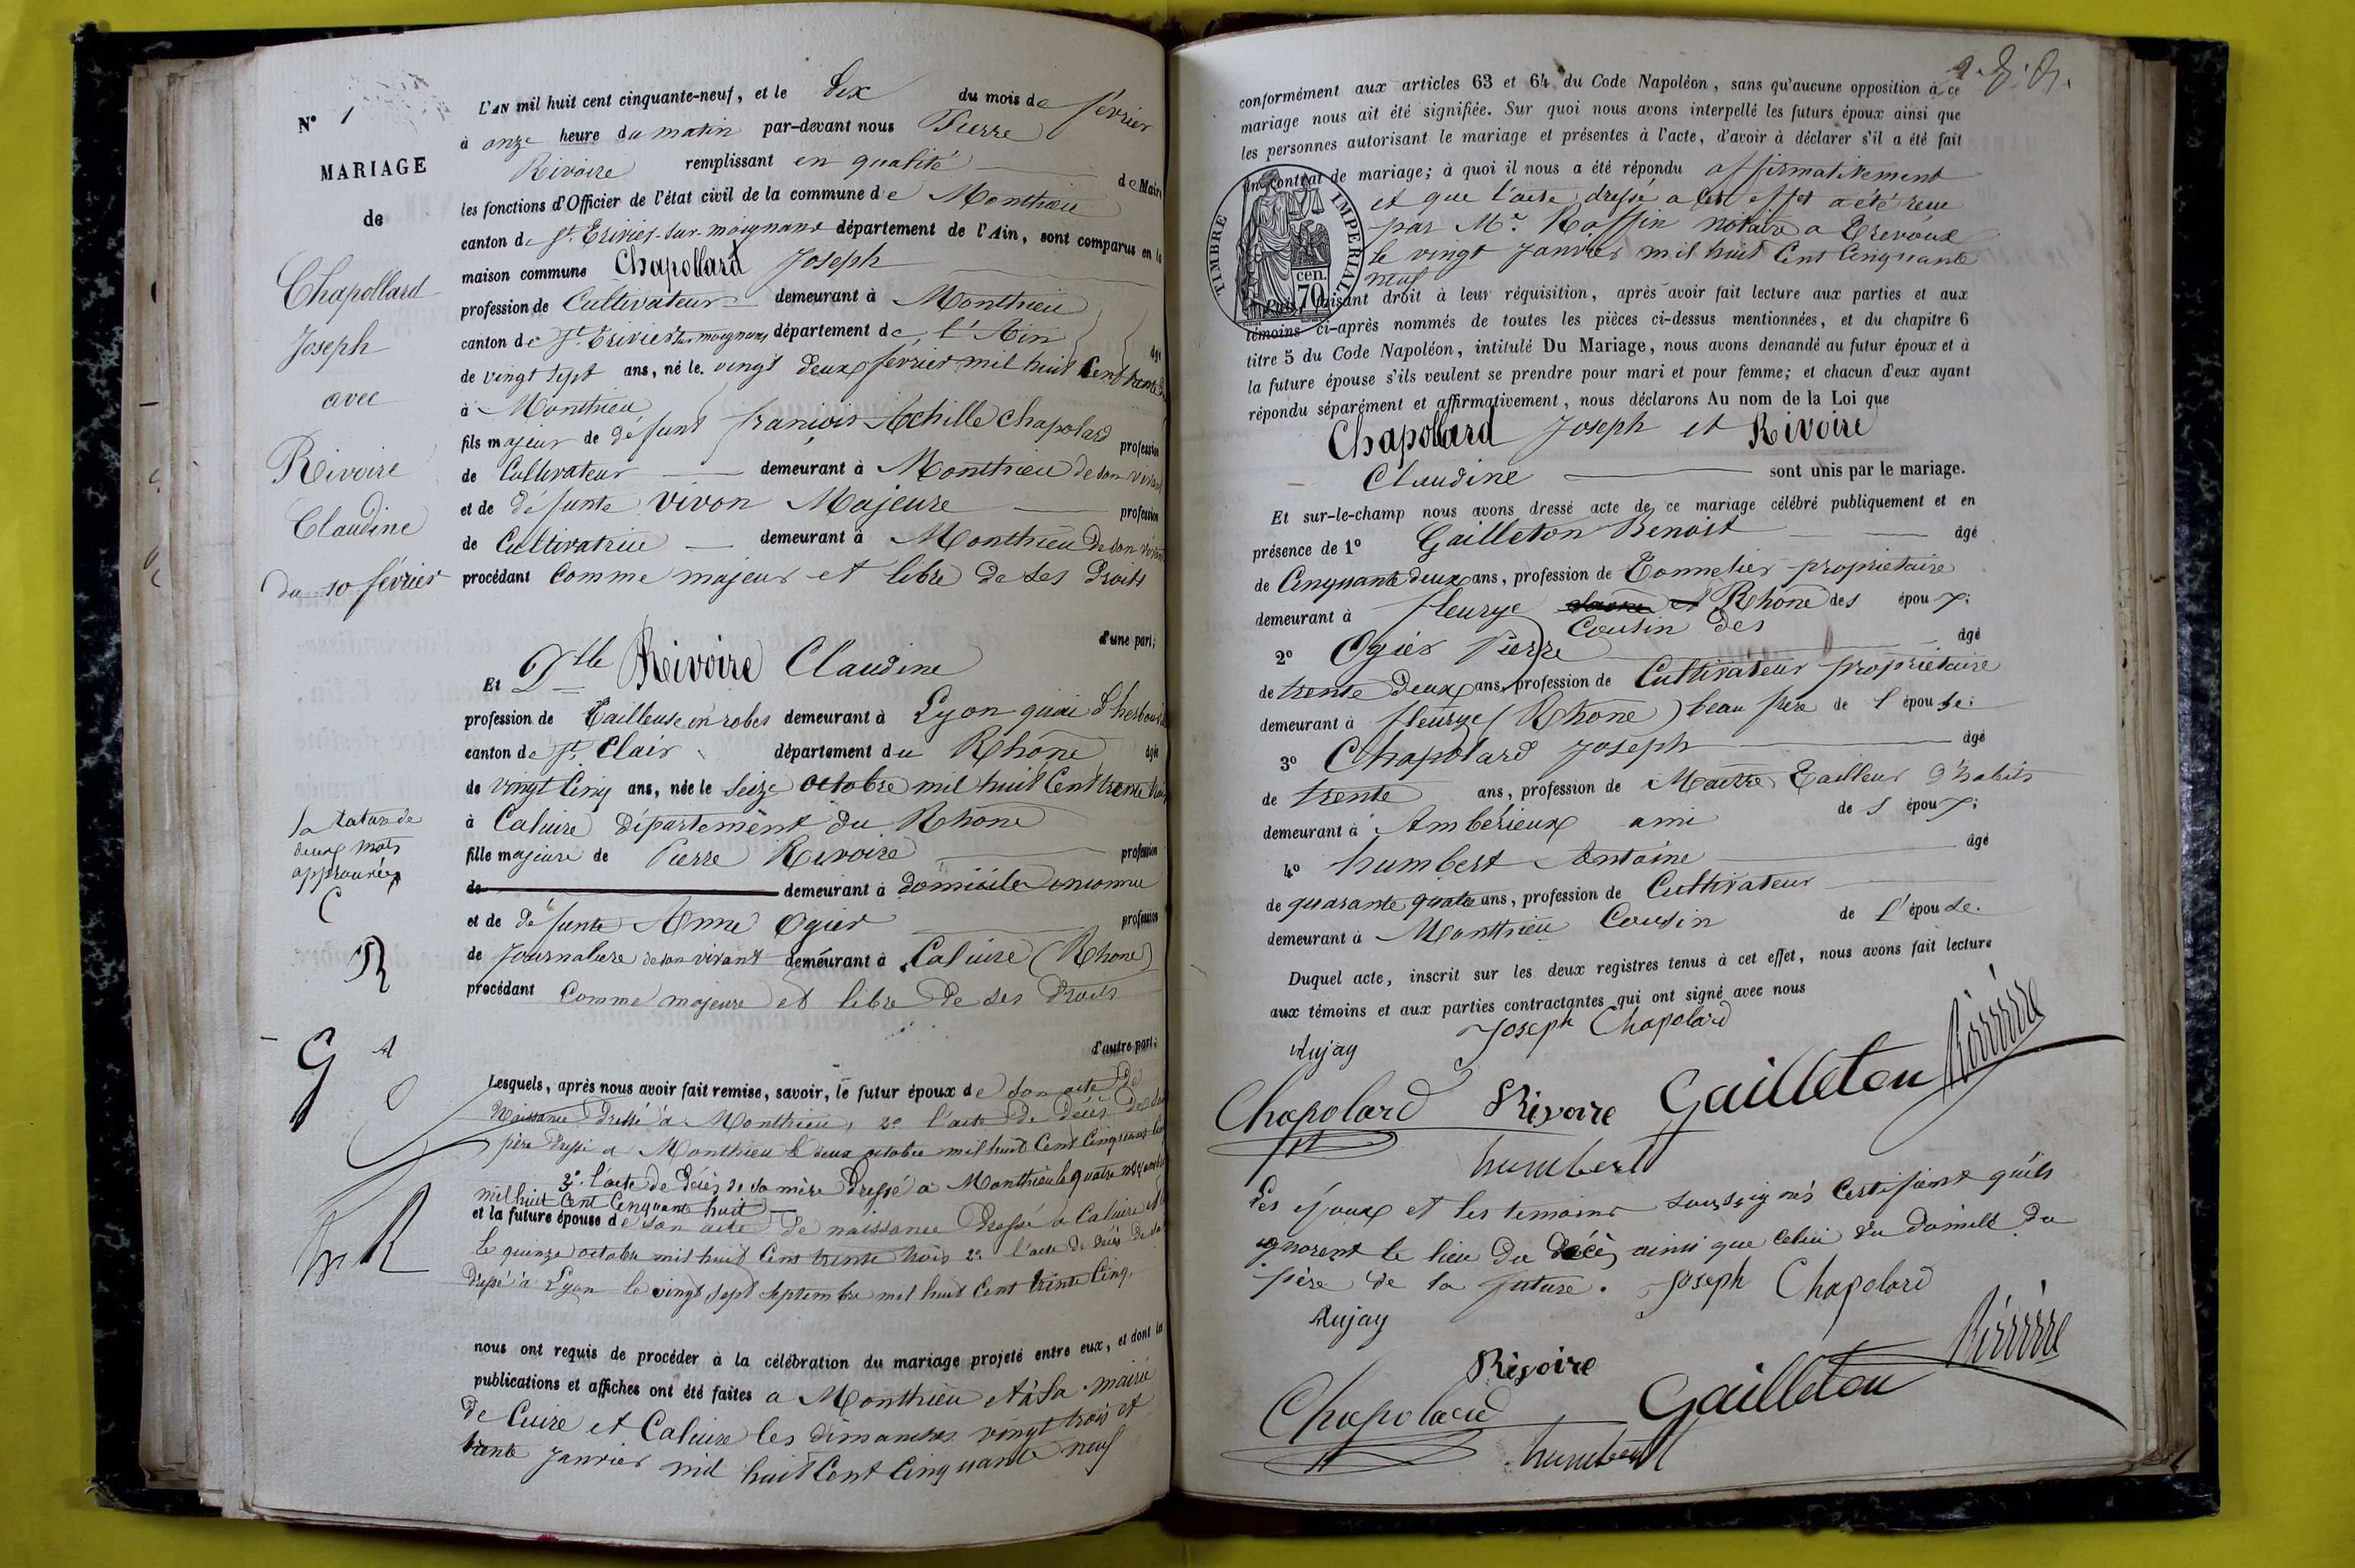 N° 1
MARIAGE
de
Chapollard
Joseph
avec
Rivoire
Claudine
du 10 février
L'AN mil huit cent cinquante-neuf, et le dix du mois de février
à onze heure du matin par-devant nous Pierre
Rivoire remplissant en qualité de Maire
les fonctions d'Officier de l'état civil de la commune de Monthieu
canton de St. Trivier-sur-moignans département de l'Ain, sont comparus en la
maison commune Chapollard Joseph
profession de Cultivateur demeurant à Monthieu
canton de St. Trivier sur moignans département de l'Ain âgé
de vingt sept ans, né le vingt deux février mil huit Cent trente
à Monthieu
fils majeur de défunt françois Achille Chapolard profession
de Cultivateur demeurant à Monthieu de son vivant
et de défunte Vivon Majeure profession
de Cultivatrice demeurant à Monthieu de son vivant
procédant Comme majeur et libre de ses droits
d'une part;
Et Dlle Rivoire Claudine
profession de Tailleuse en robes demeurant à Lyon quai d'herbouville
canton de St. Clair département du Rhône âgée
de vingt Cinq ans, née le seize octobre mil huit Cent trente trois
à Caluire département du Rhône
fille majeure de Pierre Rivoire profession
de demeurant à domicile inconnu
et de défunte Anne Ogier profession
de journalière de son vivant demeurant à Caluire (Rhone)
procédant Comme majeure et libre de ses droits
d'autre part;
la rature de
deux mots
approuvée
C
R
G A
h R
Lesquels, après nous avoir fait remise, savoir, le futur époux de son acte de
Naissance dressé à Monthieu, 2° l'acte de décès de son
père dressé a Monthieu le deux octobre mil huit Cent Cinquante
3° l'acte de décès de sa mère dressé a Monthieu le quatre
mil huit Cent Cinquante huit
et la future épouse de son acte de naissance dressé a Caluire
le quinze octobre mil huit Cent trente trois 2° l'acte de décès de sa
dressé à Lyon le vingt sept septembre mil huit Cent trente Cinq.
nous ont requis de procéder à la célébration du mariage projeté entre eux, et dont les
publications et affiches ont été faites a Monthieu et à la mairie
de Cuire et Caluire les dimanches vingt trois et
trente janvier mil huit Cent Cinquante neuf
conformément aux articles 63 et 64 du Code Napoléon, sans qu'aucune opposition à ce
mariage nous ait été signifiée. Sur quoi nous avons interpellé les futurs époux ainsi que
les personnes autorisant le mariage et présentes à l'acte, d'avoir à déclarer s'il a été fait
un contrat de mariage; à quoi il nous a été répondu affirmativement
et que l'acte dressé a cet effet a été reçu
par Mr. Raffin notaire a Trevoux
le vingt janvier mil huit Cent Cinquante
neuf
TIMBRE IMPERIAL
70 cen.
Puis, faisant droit à leur réquisition, après avoir fait lecture aux parties et aux
témoins ci-après nommés de toutes les pièces ci-dessus mentionnées, et du chapitre 6
titre 5 du Code Napoléon, intitulé Du Mariage, nous avons demandé au futur époux et à
la future épouse s'ils veulent se prendre pour mari et pour femme; et chacun d'eux ayant
répondu séparément et affirmativement, nous déclarons Au nom de la Loi que
Chapollard Joseph et Rivoire
Claudine sont unis par le mariage.
Et sur-le-champ nous avons dressé acte de ce mariage célébré publiquement et en
présence de 1° Gailleton Benoist âgé
de Cinquante deux ans, profession de Tonnelier propriétaire
demeurant à fleurye Rhône des époux;
Cousin des
2° Ogier Pierre âgé
de trente deux ans, profession de Cultivateur propriétaire
demeurant à fleurye (Rhone) beau frere de l'épouse;
3° Chapolard Joseph âgé
de trente ans, profession de Maitre Tailleur d'habits
demeurant à Ambérieux ami de s époux;
4° humbert Antoine âgé
de quarante quatre ans, profession de Cultivateur
demeurant à Monthieu Cousin de l'épouse.
Duquel acte, inscrit sur les deux registres tenus à cet effet, nous avons fait lecture
aux témoins et aux parties contractantes qui ont signé avec nous
Joseph Chapolard
Chapolard Rivoire Gailleton Rivoire
humbert
Les époux et les temoins soussignés Certifient qu'ils
ignorent le lieu du décès ainsi que celui du domicile du
père de la future. Joseph Chapolard
Rivoire Rivoire
Chapolard Gailleton
humbert